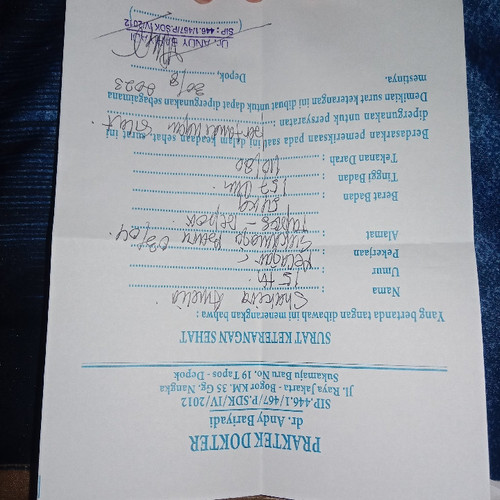 PRAKTEK DOKTER
dr. Andy Bariyadi
SIP.446.1/467/P.SDK/IV/2012
Jl. Raya Jakarta - Bogor KM. 35 Gg. Nangka
Sukamaju Baru No. 19 Tapos - Depok
SURAT KETERANGAN SEHAT
Yang bertanda tangan dibawah ini menerangkan bahwa :
Nama : Shakira Amelia
Umur : 15 th
Pekerjaan : Pelajar
Alamat : Sukamaju Baru 03/04
Tapos - Depok
Berat Badan : 54 kg
Tinggi Badan : 157 cm
Tekanan Darah : 110/80
Berdasarkan pemeriksaan pada saat ini dalam keadaan sehat surat ini
dipergunakan untuk persyaratan :
Demikian surat keterangan ini dibuat untuk dapat dipergunakan sebagaimana
mestinya.
Depok, 30/8 2023
Dr. ANDY
SIP : 446.1/467/P.SDK/IV/2012